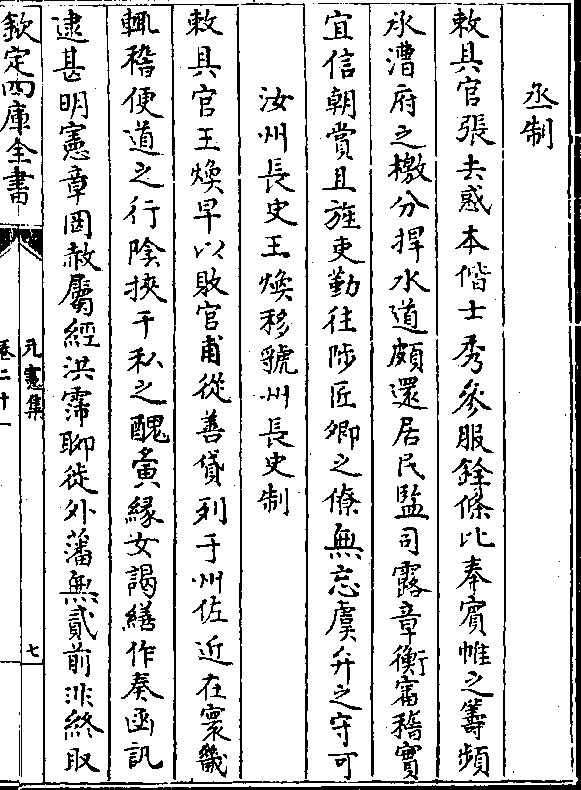 丞制
敕具官張去惑本偕士秀參服銓條比奉賓帷之籌頻
承漕府之檄分捍水道頗還居民監司露章衡審稽實
宜信朝賞且旌吏勤往陟匠卿之僚無忘虞弁之守可
汝州長史王煥移虢州長史制
敕具官王煥早以敗官甫從善貸列于州佐近在寰畿
輒稽便道之行陰挾干私之醜夤緣女謁繕作奏函訊
逮甚明憲章罔赦屬經洪霈聊徙外藩無貳前非終取
欽定四庫全書
元憲集
卷二十一
七